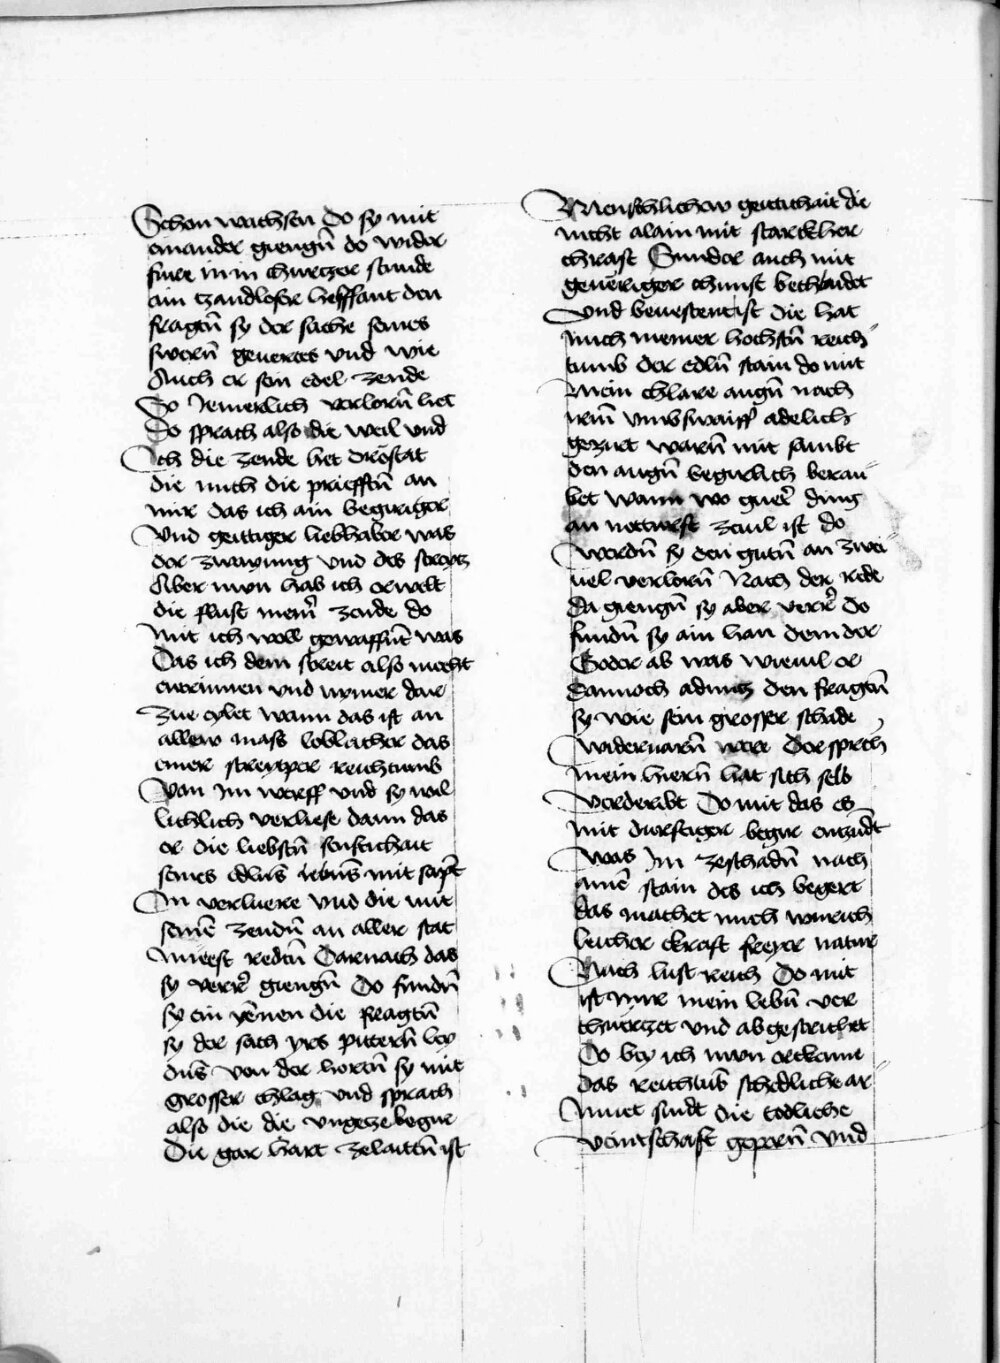 Schon wachsen Do sy mit
einander giengn̄ do wider
fuere in in churczer stunde
ain czandloser helffant den
fragtn̄ sy der sache seines
swern̄ geuertes vnd wie
Auch er sein edel zende
So Jemerlich verlorn̄ het
Do sprach also die weil vnd
Ich die zende het drostat
die mich die priefftn̄ an
mir das ich ain begiriger
Vnd geittiger liebhaber was
der zwayung vnd des streyts
Aber nvn hab ich erwelt
die flust mein̄ zende do
Mit ich woll gewaffnt̄ was
Das ich dem streit also mecht
enerinnen vnd nymer dar
Zue eylet wann das ist an
allew mass loblicher das
einer streytper reichtumb
Van Im werff vnd sy wil
lichlich verliese dann das
er die liebstn̄ senftichait
seines edlns̄ lebns̄ mit sapt̄
In verliere vnd die mit
seine zendn̄ an aller stat
Meest redtn̄ Darnach das
sy verr̄ giengn̄ Do fundn̄
sy ein die fragtn̄
sy der sach yrs pittern̄ ley
dns̄ von der hortn̄ sy mit
grosser chlag vnd sprach
also die die vngeze begir
Die gar hart zelaittn̄ ist
Menschlichew geitichait die
nicht alain mit starckher
chrafft Sunder auch mit
geueriger chunst bechlaidet
Vnd beuestent ist die hat
Mich meiner hochstn̄ reich
tumb der edln̄ stain do mit
Mein chlare augn̄ nach
irm̄ vmbswaiff adelich
geziert warn̄ mit sambt
den augn̄ begirlich berau
bet wann wo guet̄ ding
an notturft zeuil ist do
Werdn̄ sy den gutn̄ an zwei
uel verlorn̄ Nach der rede
Da giengn̄ sy aber verr̄ Do
fundn̄ sy ain han dem der
Coder ab was wieuil er
Dannoch den fragtn̄
sy wie sein grosser schade
Widerwarn̄ were Der sprch
Mein hiern̄ hat sich selb
Verderibt Do mit das es
Mit durstiger begir enczūdt
Was Im zeschadn̄ nach
aine stain des ich begert
das machet mich
leicher ckraft freyer natur
Auch lust reich Do mit
ist mir mein lebn̄ ver
chuerczet vnd abgestrichet
Do bey ich nvn erckenne
das reichtūb schedliche ar
Muet sindt die todliche
Veintschaft geporn̄ vnd